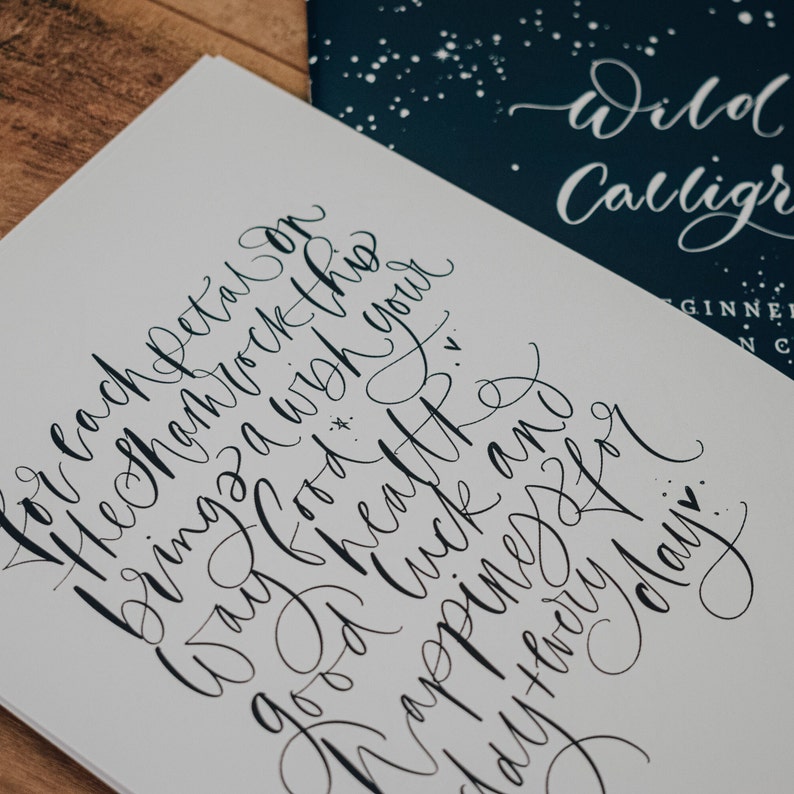 for each petal on
the shamrock this
brings a wish your
way Good health
good luck and
happiness for
day + every day
Wild
Calligr
EGINNE
N C